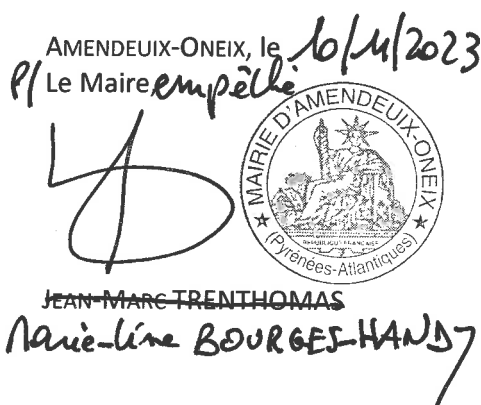 AMENDEUIX-ONEIX, le 10/11/2023
P/ Le Maire empêché
MAIRIE D'AMENDEUIX-ONEIX
REPUBLIQUE FRANCAISE
(Pyrénées-Atlantiques)
JEAN-MARC TRENTHOMAS
Marie-Line BOURGES-HANDY